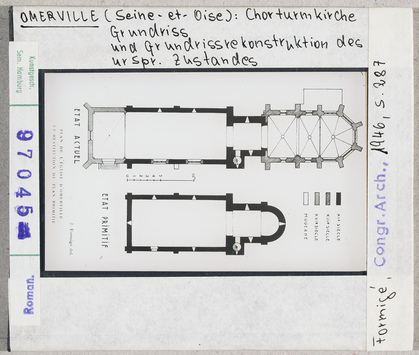 OMERVILLE (Seine-et-Oise): Chorturmkirche
Grundriss
und Grundrissrekonstruktion des
urspr. Zustandes
Kunstgesch.
Sem. Hamburg
97045
Roman.
ETAT ACTUEL
PLAN DE L'EGLISE D'OMERVILLE
ETAT PRIMITIF
XIIe SIECLE
XIIIe SIECLE
XVIe SIECLE
MODERNE
Formigé, Congr. Arch., 1946, S. 287